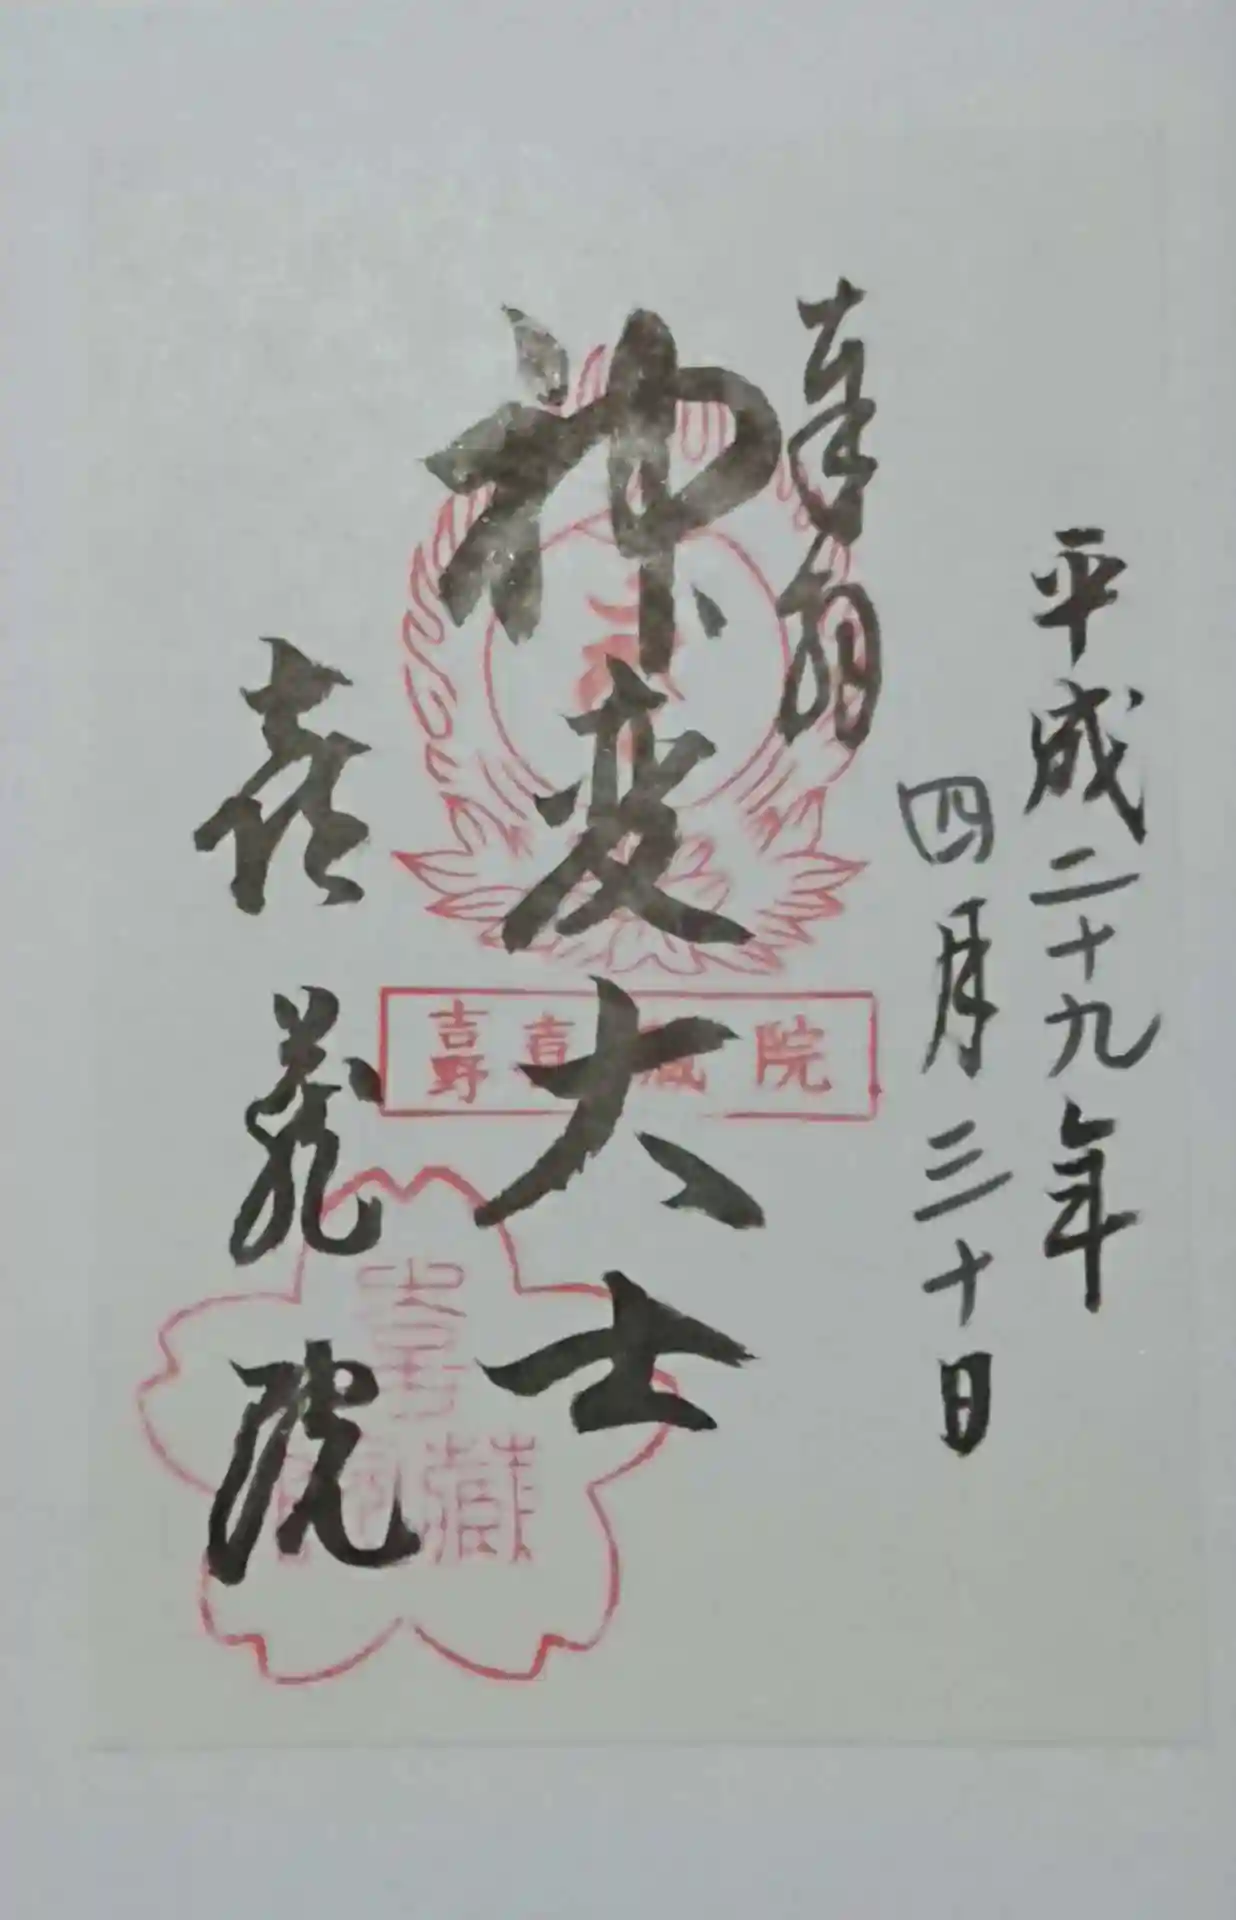 平成二十九年
四月三十日
奉
神変大士
喜蔵院
吉野喜蔵院
喜藏院